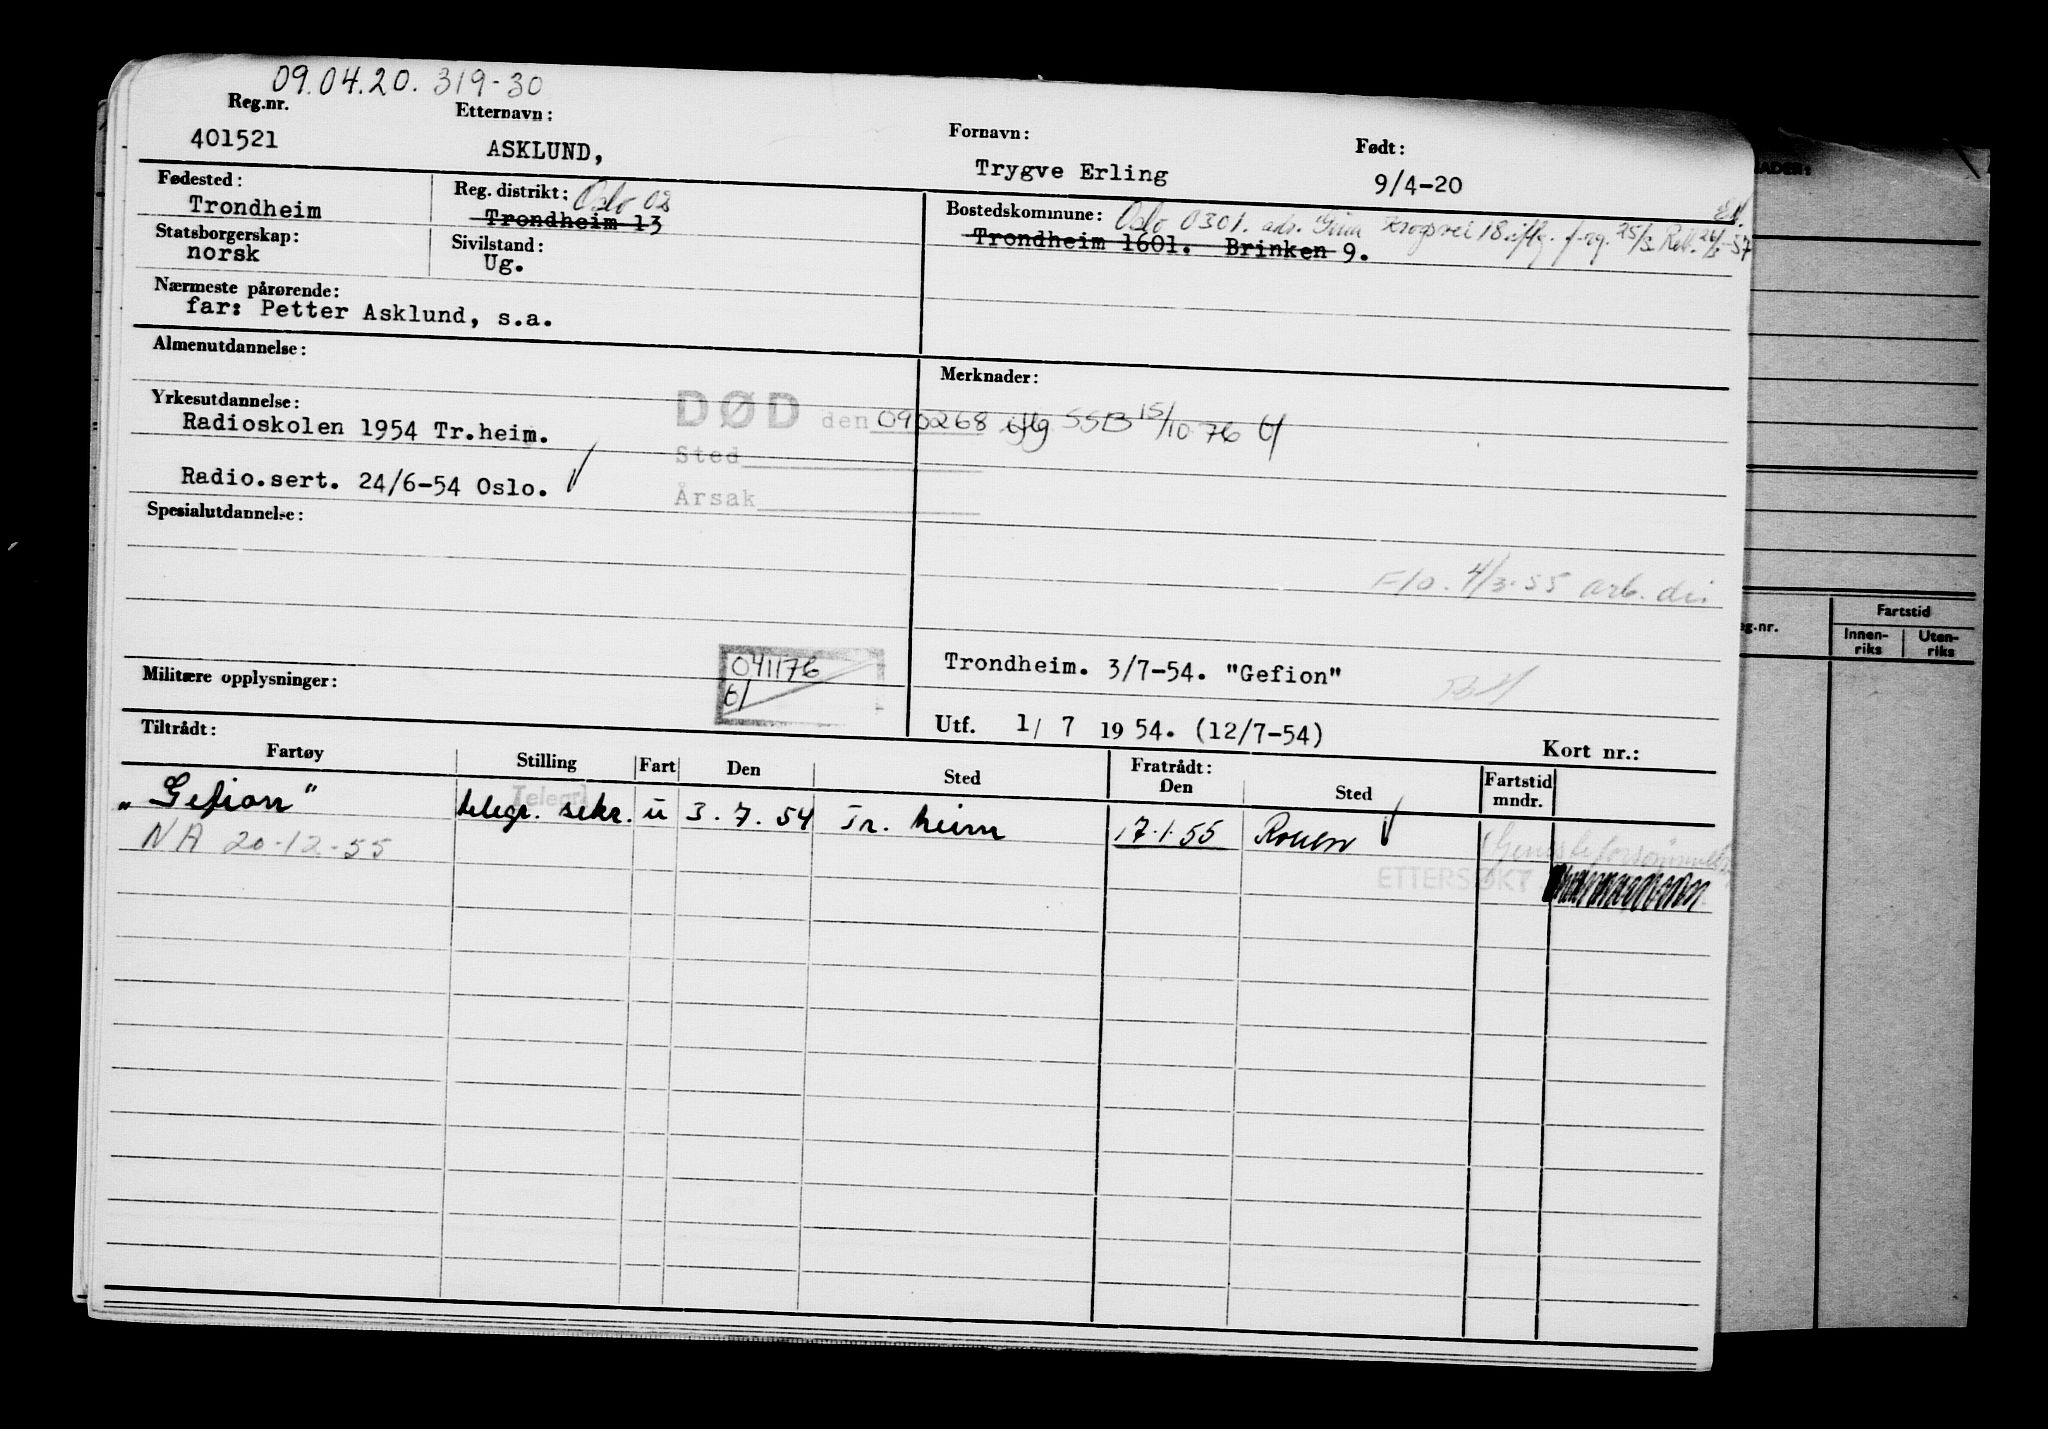 09.04.20. 319-30
Reg.nr. Etternavn: Fornavn: Født:
401521 ASKLUND, Trygve Erling 9/4-20
Fødested: Reg. distrikt: Oslo 02 Bostedskommune: Oslo 0301. adr. Gina Krogsvei 18 iflg. f.og. 25/3 Rell. 26/3-57
Trondheim Trondheim 13 Trondheim 1601. Brinken 9.
Statsborgerskap: Sivilstand:
norsk Ug.
Nærmeste pårørende:
far: Petter Asklund, s.a.
Almenutdannelse: Merknader:
Yrkesutdannelse: DØD den 090268 iflg SSB 15/10 76
Radioskolen 1954 Tr.heim.
Sted
Radio.sert. 24/6-54 Oslo.
Årsak
Spesialutdannelse:
F/o. 4/3-55 arb. dir
041176
Trondheim. 3/7-54. "Gefion"
Militære opplysninger:
Utf. 1/ 7 1954. (12/7-54) Kort nr.:
Tiltrådt: Fratrådt:
Fartøy Stilling Fart Den Sted Den Sted Fartstid mndr.
Telegr.
"Gefion" telegr. sekr. u 3.7.54 Tr. heim 17.1.55 Rouen
NA 20-12-55
ETTERSØKT
ADER:
eg.nr. Fartstid
Innen-riks Uten-riks